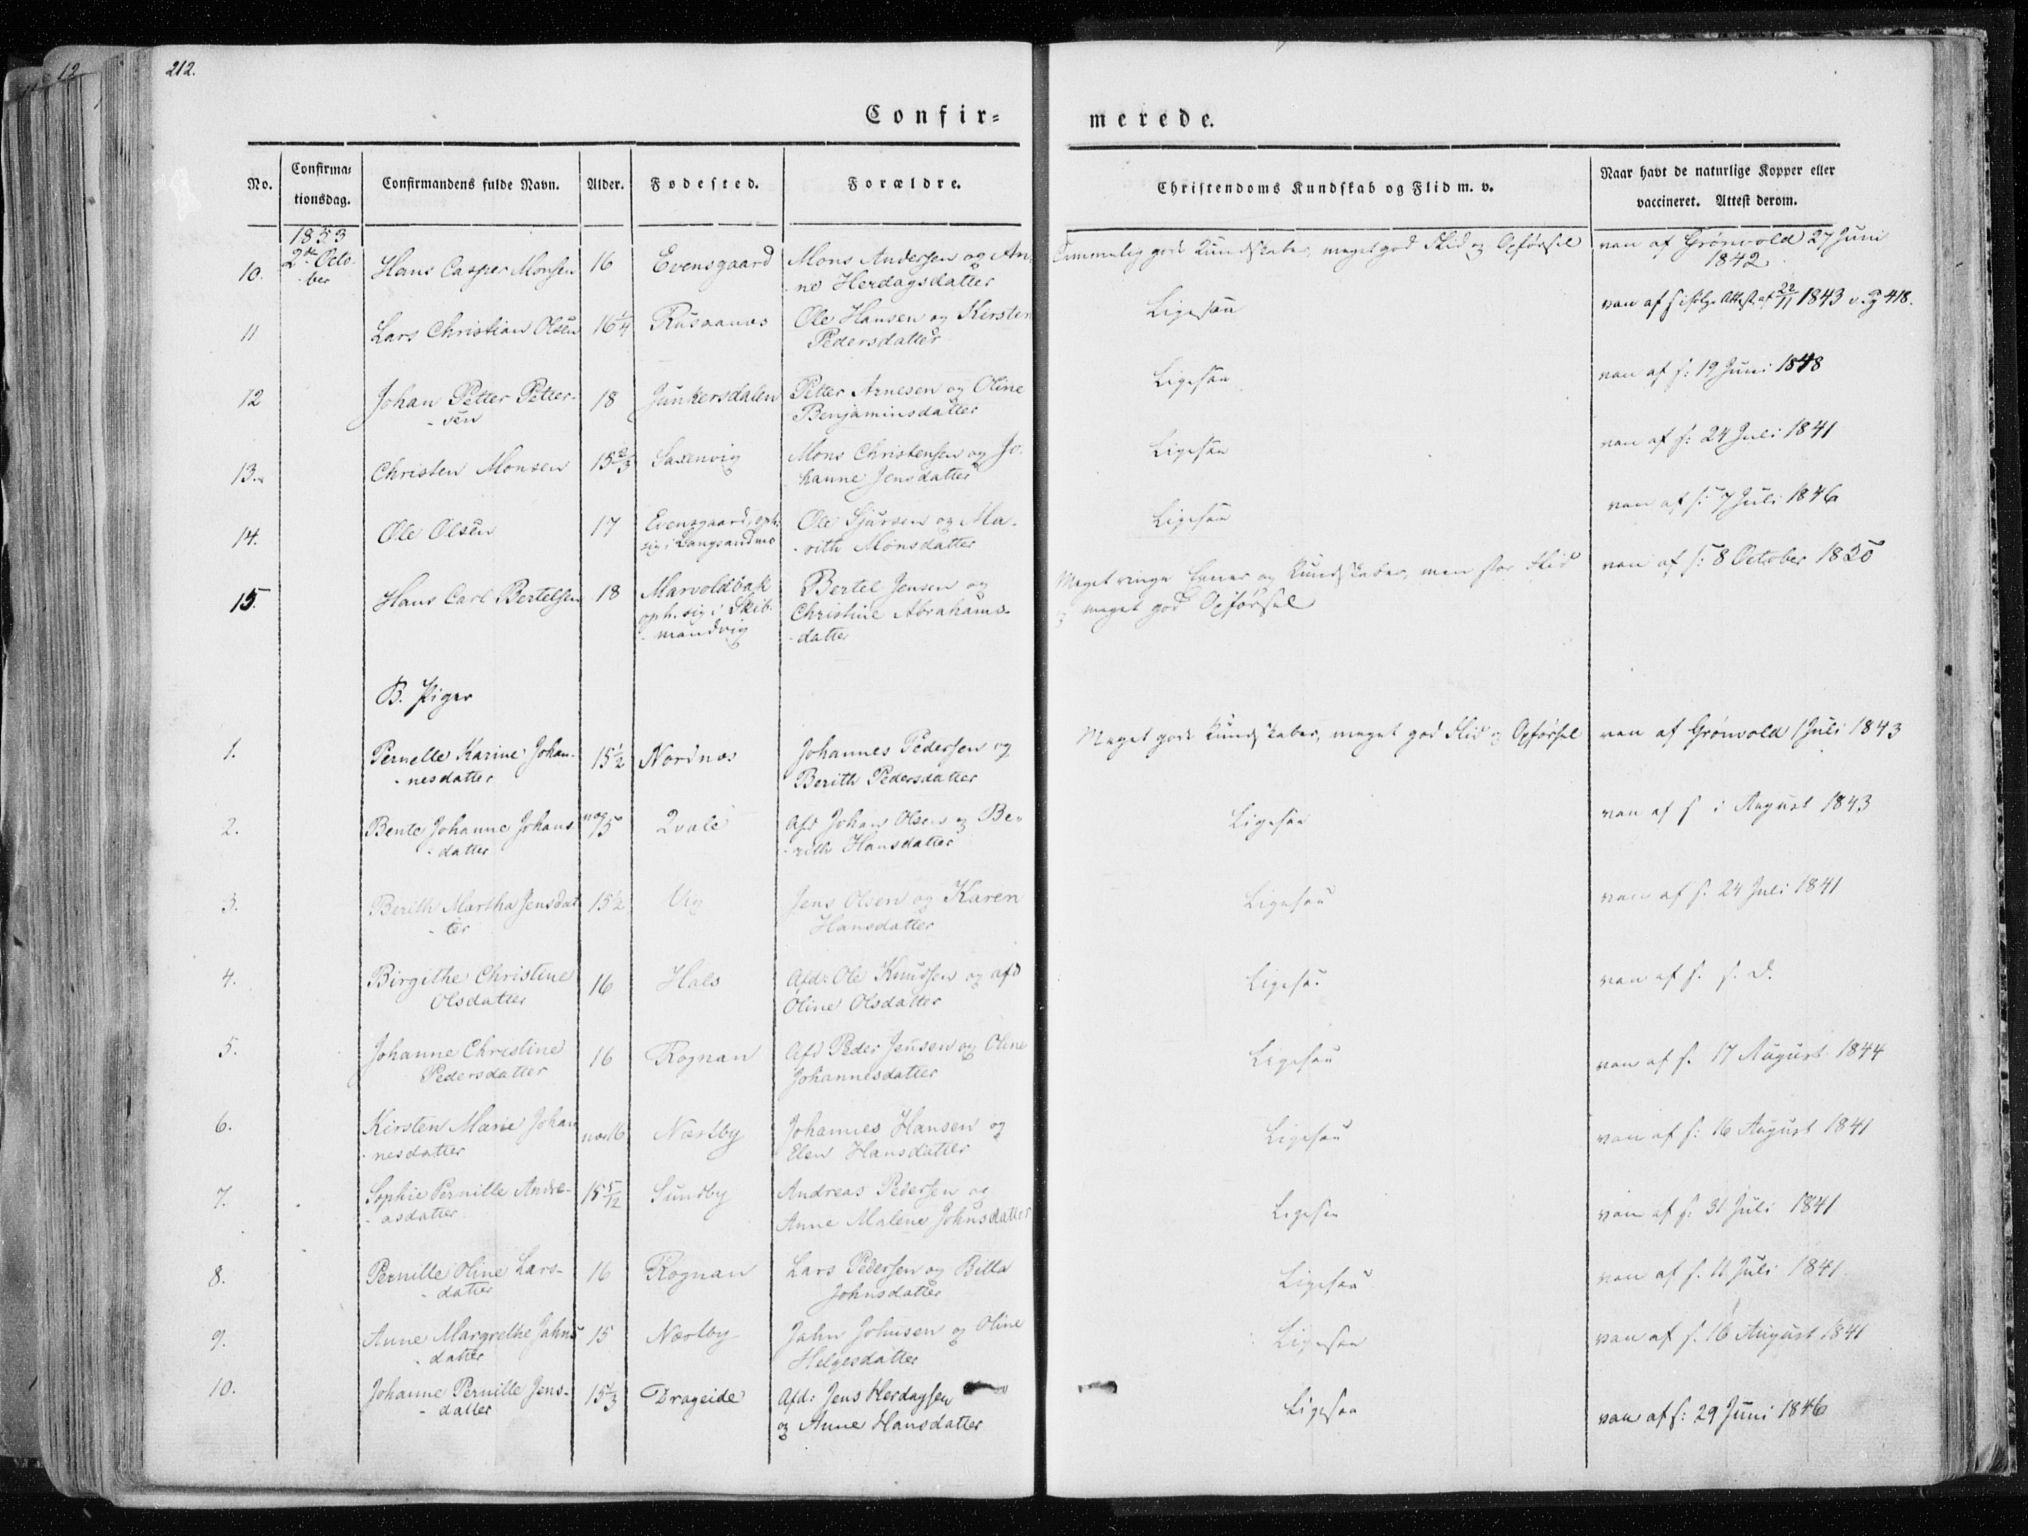 212.
12
Confir=
merede.
No.
Confirma=
tionsdag.
Confirmandens fulde Navn.
Alder.
Fødested.
Forældre.
Christendoms Kundskab og Flid m. v.
Naar havt de naturlige Kopper eller
vaccineret. Attest derom.
1853
10. 2de Octo- Hans Casper Monsen 16 Evensgaard Mons Andersen og An- Temmelig gode Kundskaber, meget god Flid og Opførsel vac af Grönvold 27 Juni
ber ne Herdagsdatter 1842
11 Lars Christian Olsen 16 1/4 Rusaanæs Ole Hansen og Kirsten Ligesaa vac af s: ifølge Attest af 22/11 1843 v. Pg 418.
Pedersdatter
12 Johan Petter Petter- 18 Junkersdalen Petter Arnesen og Oline Ligesaa vac af s: 19 Juni 1848
-sen Benjaminsdatter
13. Christen Monsen 15 2/3 Saxenvig Mons Christensen og Jo- Ligesaa vac af s: 24 Juli 1841
hanne Jensdatter
14. Ole Olsen 17 Evensgaard, oph. Ole Sjursen og Ma- Ligesaa vac af s: 7 Juli 1846
sig i Langsandmo -rith Monsdatter
15. Hans Carl Bertelsen 18 Marvoldbak Bertel Jensen og Meget ringe Evner og Kundskaber, men stor Flid vac af s: 8 October 1850
oph. sig i Skib- Christine Abrahams- og meget god Opførsel
mandvig -datter
B. Piger
1. Pernelle Karine Johan- 15 1/2 Nordnæs Johannes Pedersen og Meget gode Kundskaber, meget god Flid og Opførsel vac af Grönvold 1 Juli 1843
-nesdatter Berith Pedersdatter
2. Bente Johanne Johans 15 Qvale Afd Johan Olsen og Be- Ligesaa vac af s 1 August 1843
-datter -rith Hansdatter
3. Berith Martha Jensdat 15 1/2 Vig Jens Olsen og Karen Ligesaa vac af s. 24 Juli 1841
-ter Hansdatter
4. Birgithe Christine 16 Hals Afd: Ole Knudsen og afd Ligesaa vac af s. s. D.
Olsdatter Oline Olsdatter
5. Johanne Christine 16 Rognan Afd Peder Jensen og Oline Ligesaa vac af s. 17 August 1844
Pedersdatter Johannesdatter
6. Kirsten Marie Johan 16 Næstby Johannes Hansen og Ligesaa vac af s: 16 August 1841
nesdatter Elen Hansdatter
7. Sophie Pernille Andre- 15 5/12 Sundby Andreas Pedersen og Ligesaa vac af s: 31 Juli 1841
-asdatter Anne Malene Johnsdatter
8. Pernille Oline Lars- 16 Rognan Lars Pedersen og Bella Ligesaa vac af s. 11 Juli 1841
-datter Johnsdatter
9. Anne Margrethe Johns 15 Næstby John Johnsen og Oline Ligesaa vac af s. 16 August 1841
-datter Helgesdatter
10. Johanne Pernille Jens- 15 1/3 Drageide Afd: Jens Herdagsen Ligesaa vac af s: 29 Juni 1846
-datter og Anne Hansdatter